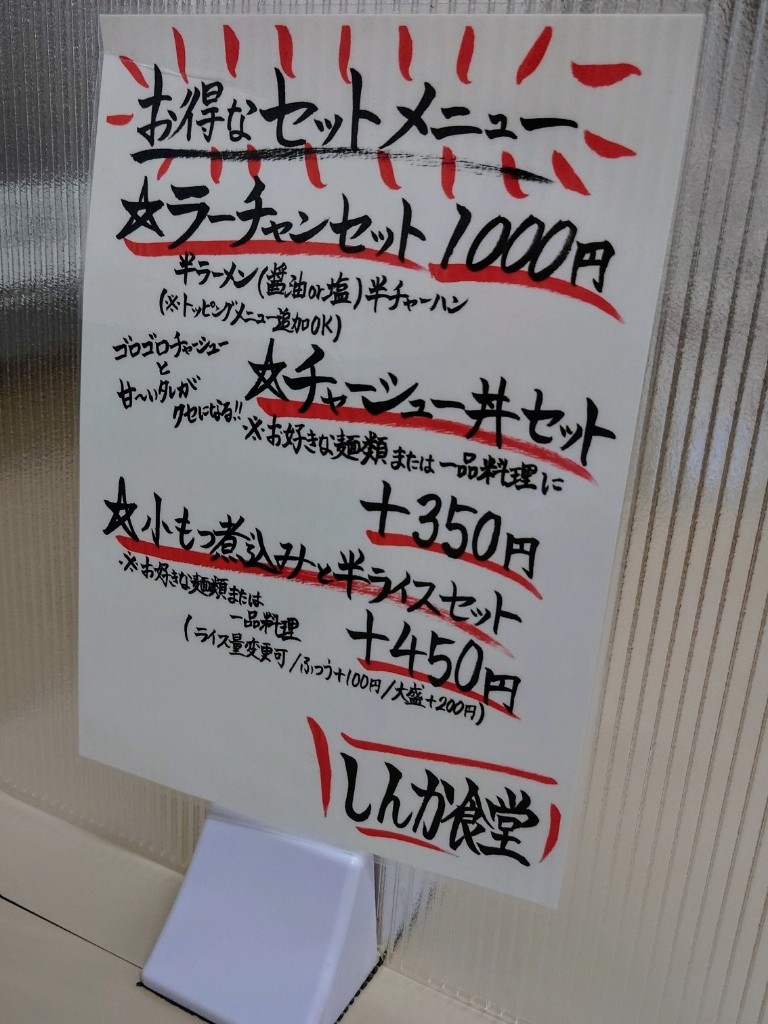 お得なセットメニュー
☆ラーチャンセット 1000円
半ラーメン(醤油or塩)半チャーハン
(※トッピングメニュー追加OK)
ゴロゴロチャーシュー
と
甘〜いタレが
クセになる!!
☆チャーシュー丼セット
※お好きな麺類または一品料理に
+350円
☆小もつ煮込みと半ライスセット
※お好きな麺類または
一品料理
+450円
(ライス量変更可/ふつう+100円/大盛+200円)
しんか食堂